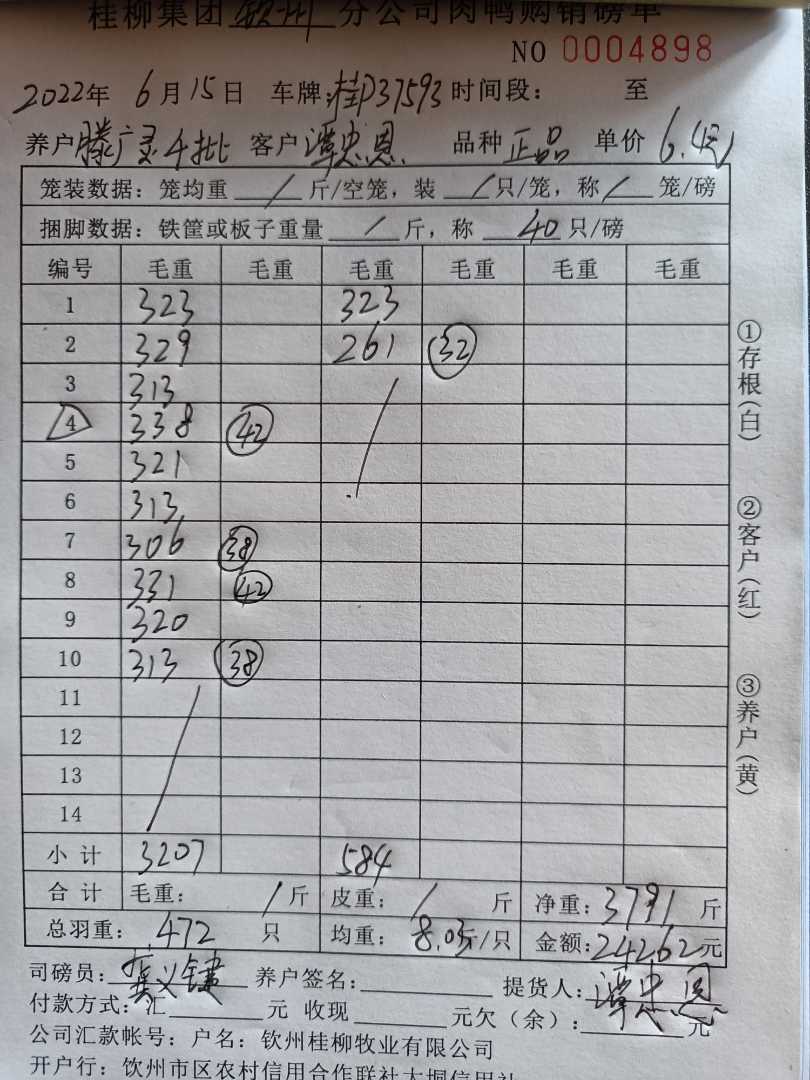 桂柳集团 钦州 分公司肉鸭购销磅单
NO 0004898
2022年 6月15日 车牌:桂D37593 时间段: 至
养户 滕广灵4批 客户 谭忠恩 品种 正品 单价 6.4元
笼装数据: 笼均重 / 斤/空笼, 装 / 只/笼, 称 / 笼/磅
捆脚数据: 铁筐或板子重量 / 斤, 称 40 只/磅
编号 毛重 毛重 毛重 毛重 毛重 毛重
1 323 323
2 329 261 32
3 313
4 338 42
5 321
6 313
7 306 38
8 331 42
9 320
10 313 38
11
12
13
14
小计 3207 584
合计 毛重: / 斤 皮重: / 斤 净重: 3791 斤
总羽重: 472 只 均重: 8.03斤/只 金额: 24262元
司磅员: 龚义键 养户签名: 提货人: 谭忠恩
付款方式: 汇 元 收现 元欠(余): 元
公司汇款帐号: 户名: 钦州桂柳牧业有限公司
开户行: 钦州市区农村信用合作联社大垌信用社
①存根(白)
②客户(红)
③养户(黄)